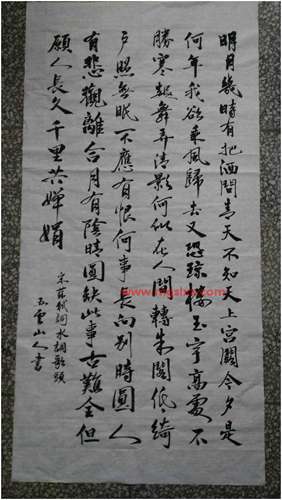 明月幾時有把酒問青天不知天上宮闕今夕是
何年我欲乘風歸去又恐瓊樓玉宇高處不
勝寒起舞弄清影何似在人間轉朱閣低綺
戶照無眠不應有恨何事長向別時圓人
有悲歡離合月有陰晴圓缺此事古難全但
願人長久千里共嬋娟
宋蘇軾詞水調歌頭
雲山人書